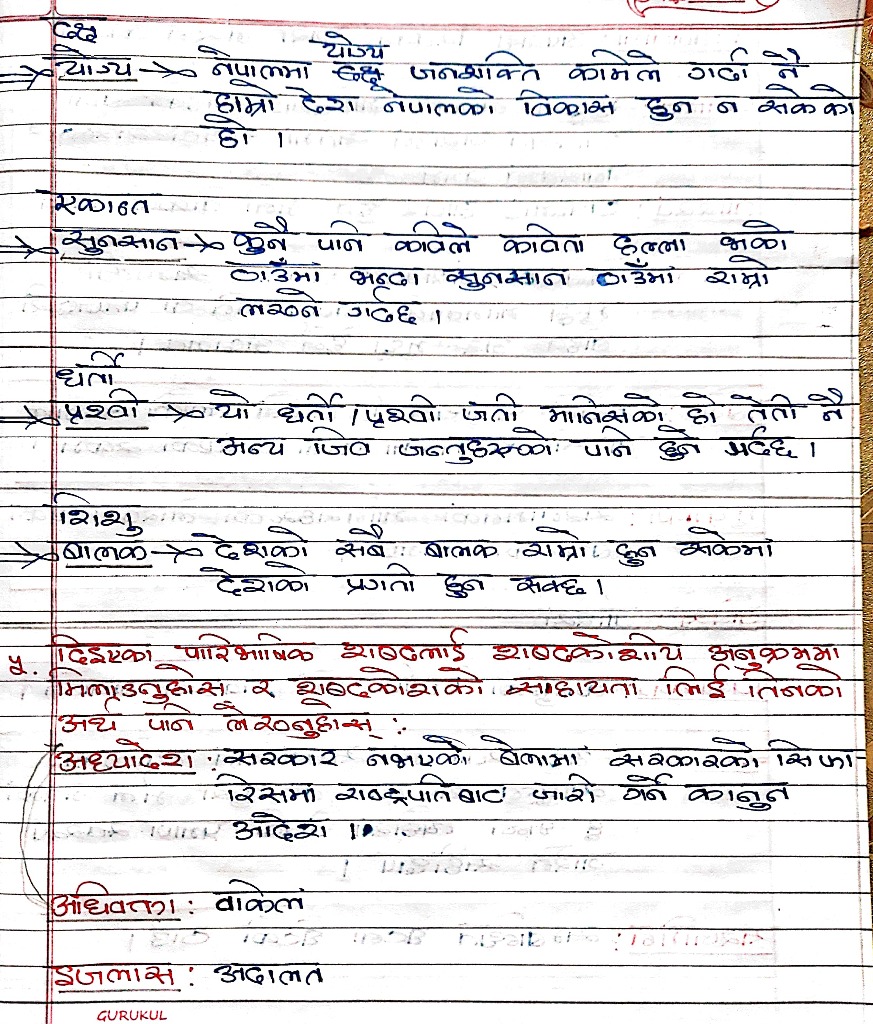 दक्ष
योग्य
योग्य → नेपालमा दक्ष जनशक्ति कमिले गर्दा नै
हाम्रो देश नेपालको विकास हुन न सकेको
हो ।
एकान्त
सुनसान → कुनै पनि कविले कविता हल्ला भको
ठाउँमा भन्दा सुनसान ठाउँमा राम्रो
लख्ने गर्दछ ।
धर्ती
पृथ्वी → यो धर्ती / पृथ्वी जती मानिसको हो तेती नै
अन्य जिव जन्तुहरूको पनि हुने गर्दछ ।
शिशु
बालक → देशको सबै बालक राम्रो हुन सकेमा
देशको प्रगती हुन सक्छ ।
५. दिइएका पारिभाषिक शब्दलाई शब्दकोशीय अनुक्रममा
मिलाउनुहोस र शब्दकोशको साहायता लिई तिनको
अर्थ पनि लेख्नुहोस् :
अध्यादेश : सरकार नभएको बेलामा सरकारको सिफा-
रिसमा राष्ट्रपतिबाट जारी गर्ने कानुन
आदेश ।
अधिवक्ता : वकिल
इजलास : अदालत
GURUKUL